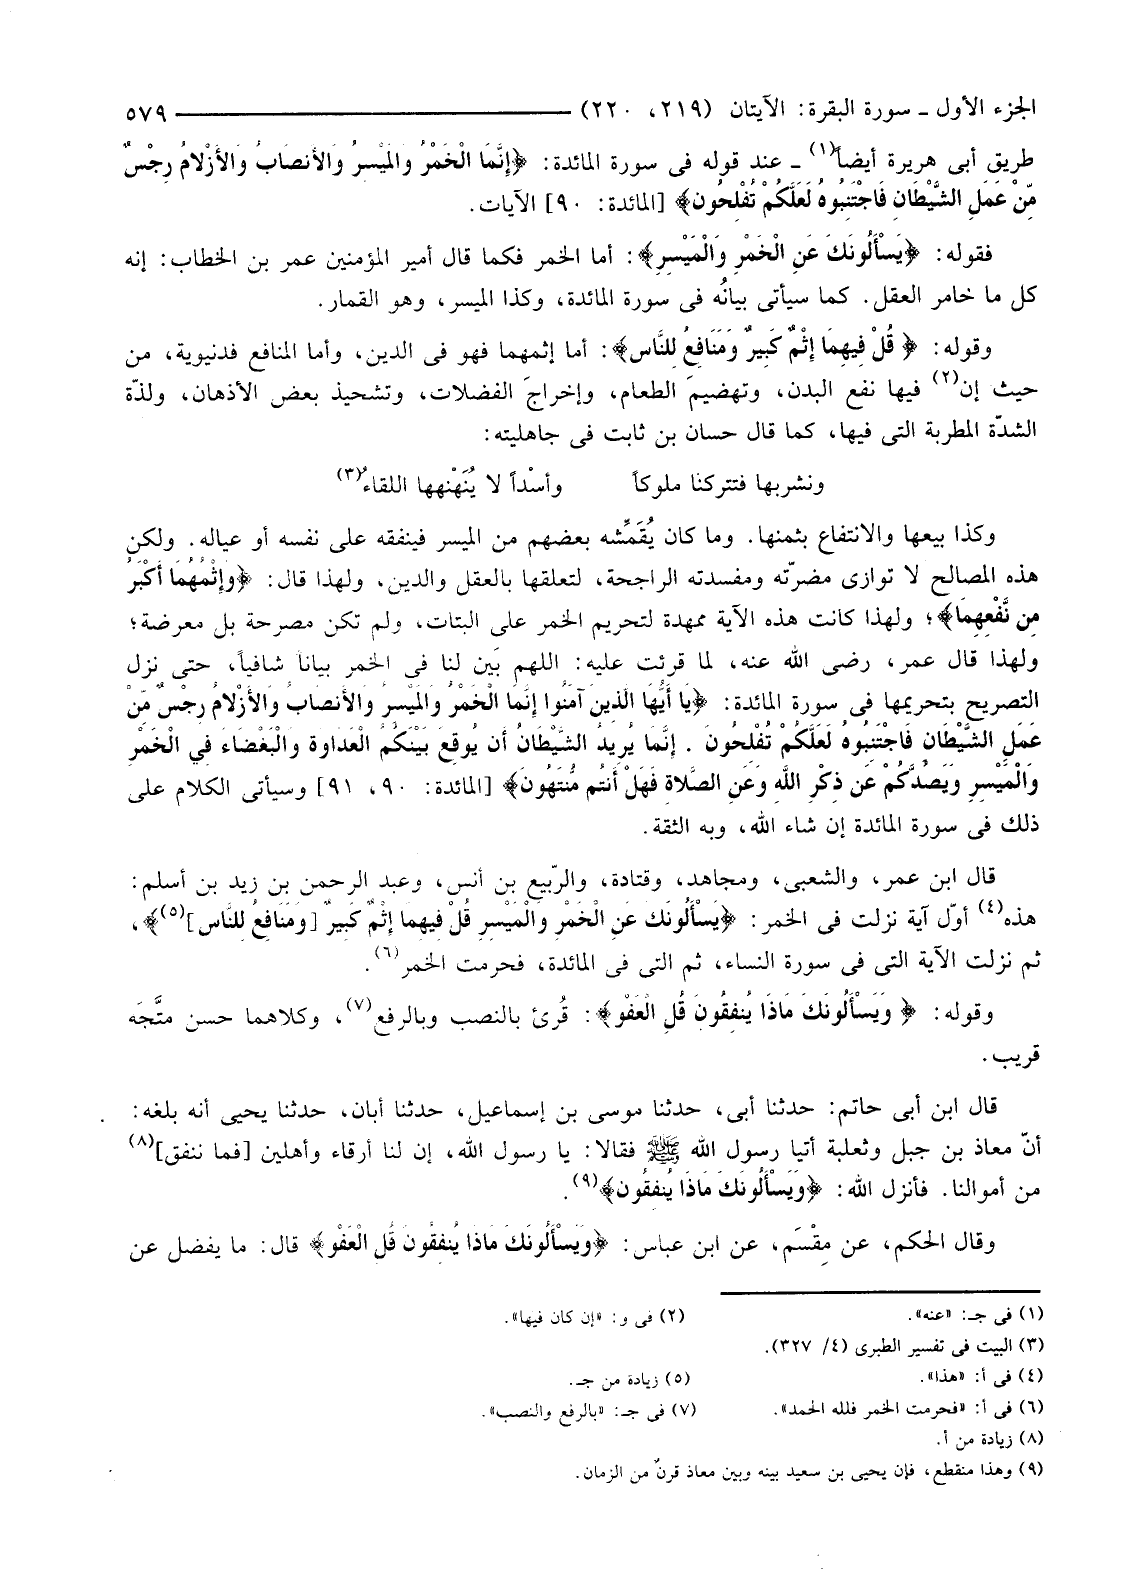 الجزء الأول ـ سورة البقرة: الآيتان (٢١٩، ٢٢٠) ٥٧٩
طريق أبى هريرة أيضاً(١) ـ عند قوله فى سورة المائدة: ﴿إِنَّمَا الْخَمْرُ وَالْمَيْسِرُ وَالأَنصَابُ وَالأَزْلامُ رِجْسٌ
مِّنْ عَمَلِ الشَّيْطَانِ فَاجْتَنِبُوهُ لَعَلَّكُمْ تُفْلِحُونَ﴾ [المائدة: ٩٠] الآيات.
فقوله: ﴿يَسْأَلُونَكَ عَنِ الْخَمْرِ وَالْمَيْسِرِ﴾: أما الخمر فكما قال أمير المؤمنين عمر بن الخطاب: إنه
كل ما خامر العقل. كما سيأتى بيانُه فى سورة المائدة، وكذا الميسر، وهو القمار.
وقوله: ﴿ قُلْ فِيهِمَا إِثْمٌ كَبِيرٌ وَمَنَافِعُ لِلنَّاسِ﴾: أما إثمهما فهو فى الدين، وأما المنافع فدنيوية، من
حيث إن(٢) فيها نفع البدن، وتهضيمَ الطعام، وإخراجَ الفضلات، وتشحيذ بعض الأذهان، ولذّة
الشدّة المطربة التى فيها، كما قال حسان بن ثابت فى جاهليته:
ونشربها فتتركنا ملوكاً وأسْداً لا يُنَهْنهها اللقاءُ(٣)
وكذا بيعها والانتفاع بثمنها. وما كان يُقَمِّشه بعضهم من الميسر فينفقه على نفسه أو عياله. ولكن
هذه المصالح لا توازى مضرّته ومفسدته الراجحة، لتعلقها بالعقل والدين، ولهذا قال: ﴿وَإِثْمُهُمَا أَكْبَرُ
مِن نَّفْعِهِمَا﴾؛ ولهذا كانت هذه الآية ممهدة لتحريم الخمر على البتات، ولم تكن مصرحة بل معرضة؛
ولهذا قال عمر، رضى الله عنه، لما قرئت عليه: اللهم بَين لنا فى الخمر بيانا شافياً، حتى نزل
التصريح بتحريمها فى سورة المائدة: ﴿يَا أَيُّهَا الَّذِينَ آمَنُوا إِنَّمَا الْخَمْرُ وَالْمَيْسِرُ وَالأَنصَابُ وَالأَزْلامُ رِجْسٌ مِّنْ
عَمَلِ الشَّيْطَانِ فَاجْتَنِبُوهُ لَعَلَّكُمْ تُفْلِحُونَ . إِنَّمَا يُرِيدُ الشَّيْطَانُ أَن يُوقِعَ بَيْنَكُمُ الْعَدَاوَةَ وَالْبَغْضَاءَ فِي الْخَمْرِ
وَالْمَيْسِرِ وَيَصُدَّكُمْ عَن ذِكْرِ اللَّهِ وَعَنِ الصَّلاةِ فَهَلْ أَنتُم مُّنتَهُونَ﴾ [المائدة: ٩٠، ٩١] وسيأتى الكلام على
ذلك فى سورة المائدة إن شاء الله، وبه الثقة.
قال ابن عمر، والشعبى، ومجاهد، وقتادة، والربّيع بن أنس، وعبد الرحمن بن زيد بن أسلم:
هذه(٤) أوّل آية نزلت فى الخمر: ﴿يَسْأَلُونَكَ عَنِ الْخَمْرِ وَالْمَيْسِرِ قُلْ فِيهِمَا إِثْمٌ كَبِيرٌ [وَمَنَافِعُ لِلنَّاسِ](٥)﴾،
ثم نزلت الآية التى فى سورة النساء، ثم التى فى المائدة، فحرمت الخمر(٦).
وقوله: ﴿ وَيَسْأَلُونَكَ مَاذَا يُنفِقُونَ قُلِ الْعَفْوَ﴾: قُرئ بالنصب وبالرفع(٧)، وكلاهما حسن متَّجَه
قريب.
قال ابن أبى حاتم: حدثنا أبى، حدثنا موسى بن إسماعيل، حدثنا أبان، حدثنا يحيى أنه بلغه:
أنّ معاذ بن جبل وثعلبة أتيا رسول الله ﷺ فقالا: يا رسول الله، إن لنا أرقاء وأهلين [فما ننفق](٨)
من أموالنا. فأنزل الله: ﴿وَيَسْأَلُونَكَ مَاذَا يُنفِقُونَ﴾(٩).
وقال الحكم، عن مِقْسَم، عن ابن عباس: ﴿وَيَسْأَلُونَكَ مَاذَا يُنفِقُونَ قُلِ الْعَفْوَ﴾ قال: ما يفضل عن
(١) فى جـ: «عنه». (٢) فى و: «إن كان فيها».
(٣) البيت فى تفسير الطبرى (٤/ ٣٢٧).
(٤) فى أ: «هذا». (٥) زيادة من جـ.
(٦) فى أ: «فحرمت الخمر فلله الحمد». (٧) فى جـ: «بالرفع والنصب».
(٨) زيادة من أ.
(٩) وهذا منقطع، فإن يحيى بن سعيد بينه وبين معاذ قرنٌ من الزمان.